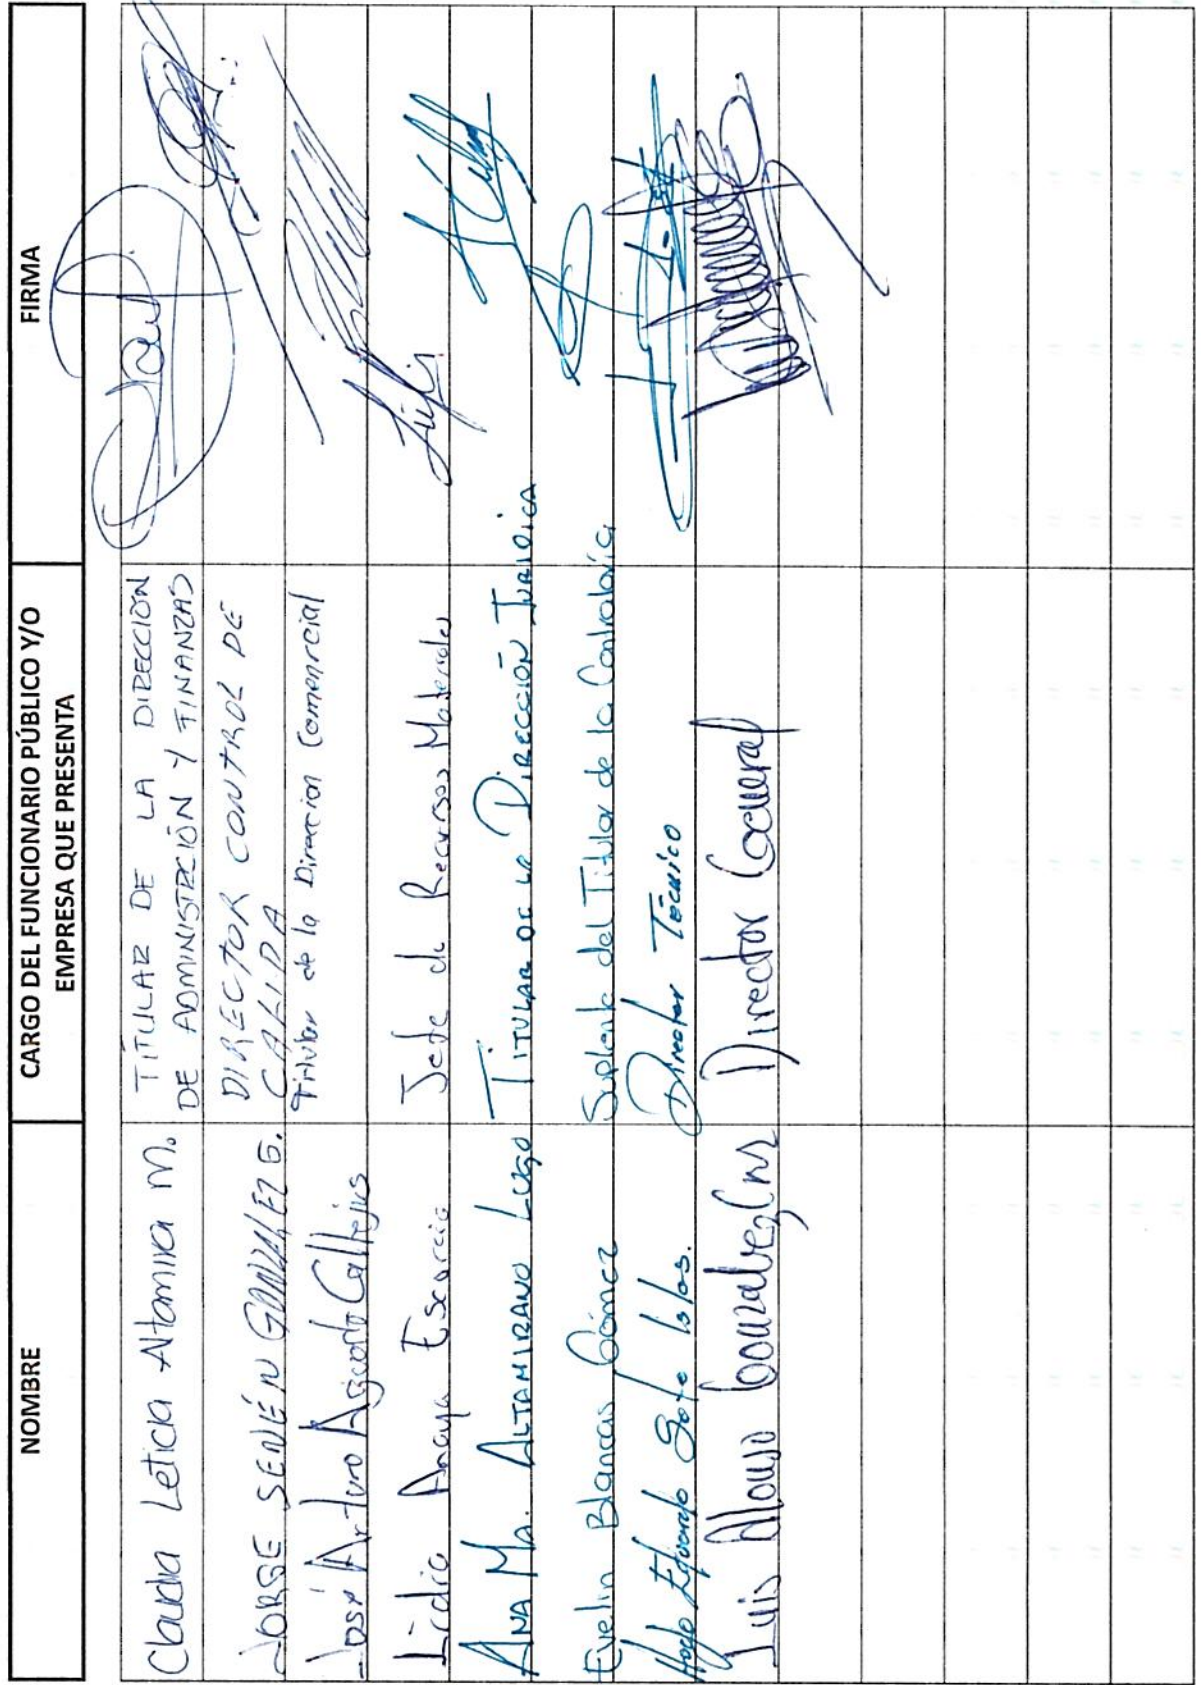 NOMBRE
CARGO DEL FUNCIONARIO PÚBLICO Y/O
EMPRESA QUE PRESENTA
FIRMA
Claudia Leticia Altamira M.
TITULAR DE LA DIRECCIÓN
DE ADMINISTRCIÓN Y FINANZAS
JORGE SENÉN GONZÁLEZ G.
DIRECTOR CONTROL DE
CALIDA
José Arturo Callejas
Titular de la Direccion Comercial
Lidia Anaya Escorcia
Jefe de Recursos Materiales
ANA MA. ALTAMIRANO LUGO
TITULAR DE LA DIRECCIÓN JURIDICA
Evelin Blancas Gómez
Suplente del Titular de la Contraloría
Hugo Eduardo Soto Islas.
Director Técnico
Luis Alonso González
Director General